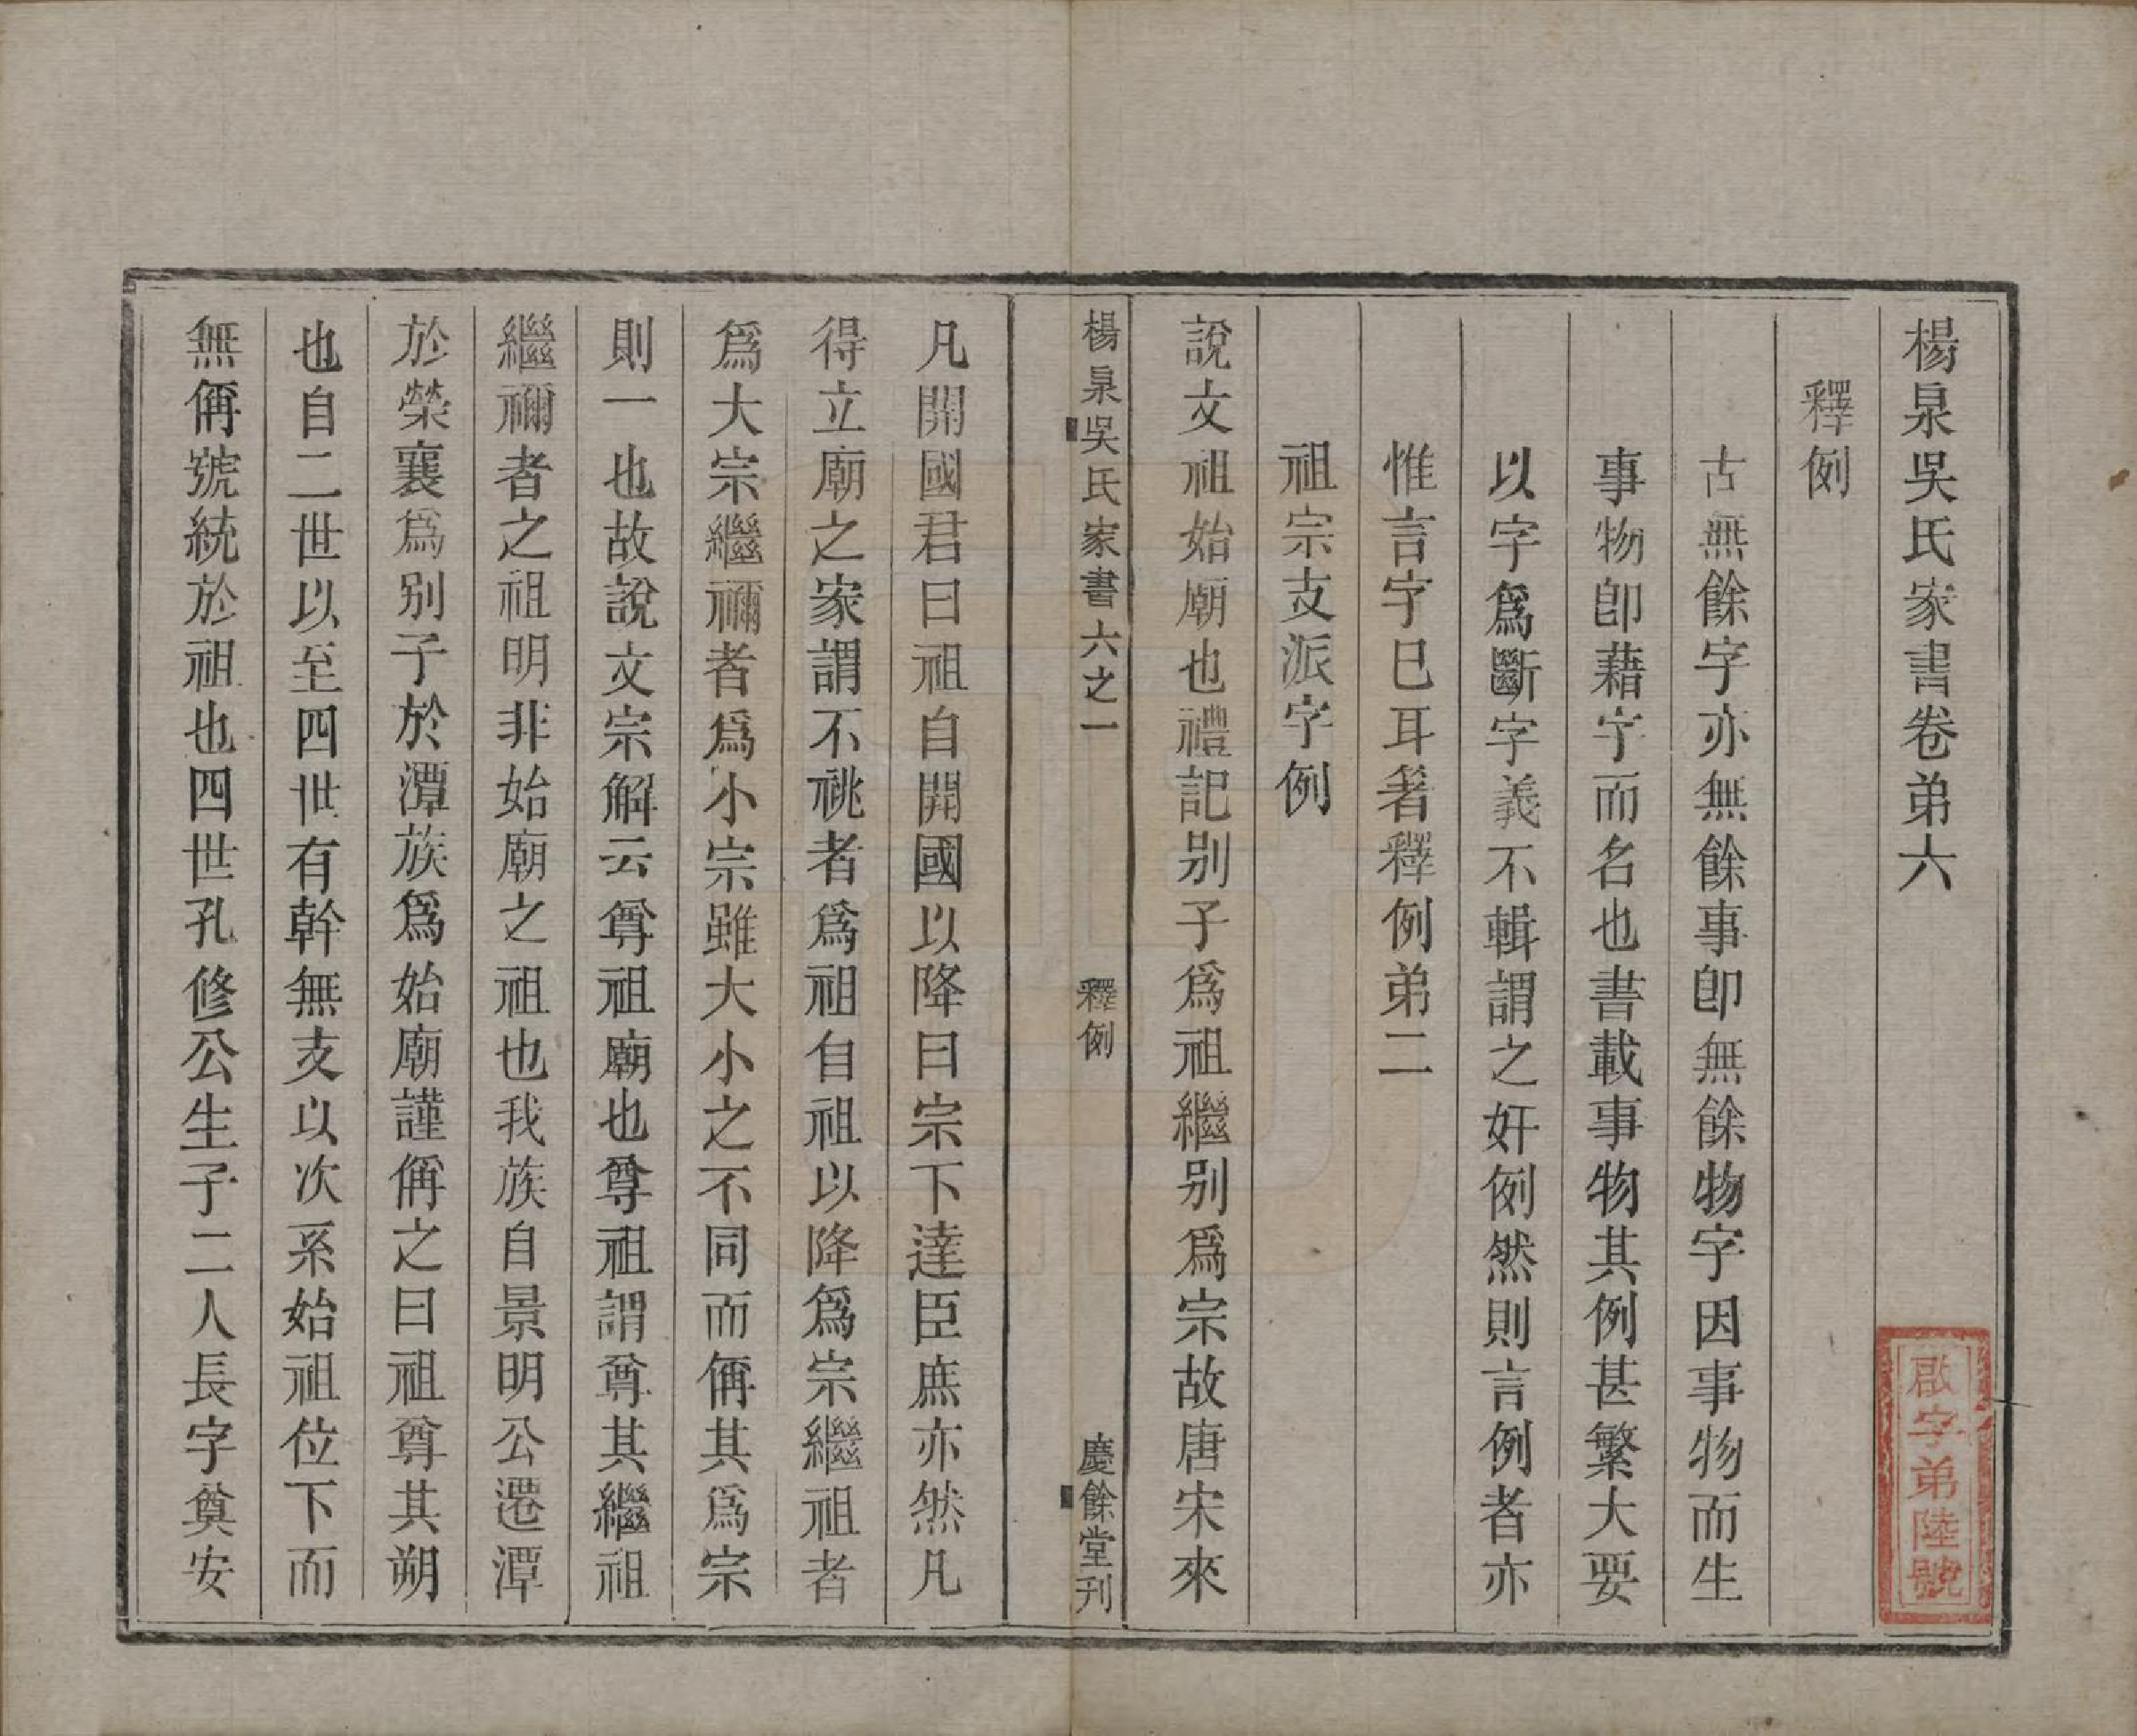 楊泉吳氏家書卷弟六
釋例
古無餘字亦無餘事卽無餘物字因事物而生
事物卽藉字而名也書載事物其例甚繁大要
以字爲斷字義不輯謂之奸例然則言例者亦
惟言字巳耳著釋例弟二
祖宗支派字例
說文祖始廟也禮記别子爲祖繼别爲宗故唐宋來
楊泉吳氏家書六之一
釋例
慶餘堂刊
凡開國君曰祖自開國以降曰宗下達臣庶亦然凡
得立廟之家謂不祧者爲祖自祖以降爲宗繼祖者
爲大宗繼禰者爲小宗雖大小之不同而偁其爲宗
則一也故說文宗解云尊祖廟也尊祖謂尊其繼祖
繼禰者之祖明非始廟之祖也我族自景明公遷潭
於榮襄爲别子於潭族爲始廟謹偁之曰祖尊其朔
也自二世以至四世有幹無支以次系始祖位下而
無偁號統於祖也四世孔修公生子二人長字奠安
啟字弟陸號